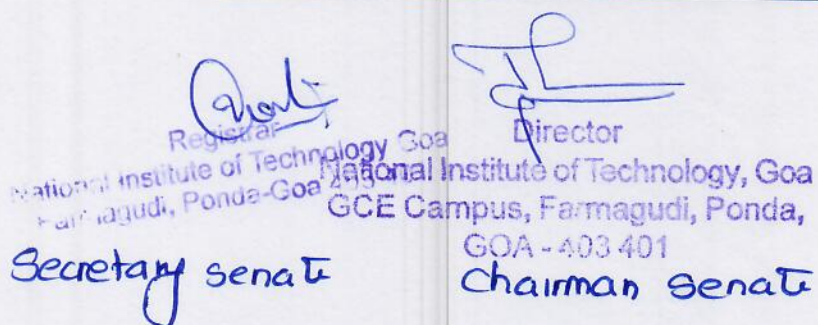 Registrar
National Institute of Technology Goa
Farmagudi, Ponda-Goa
Secretary senate
Director
National Institute of Technology, Goa
GCE Campus, Farmagudi, Ponda,
GOA - 403 401
Chairman senate